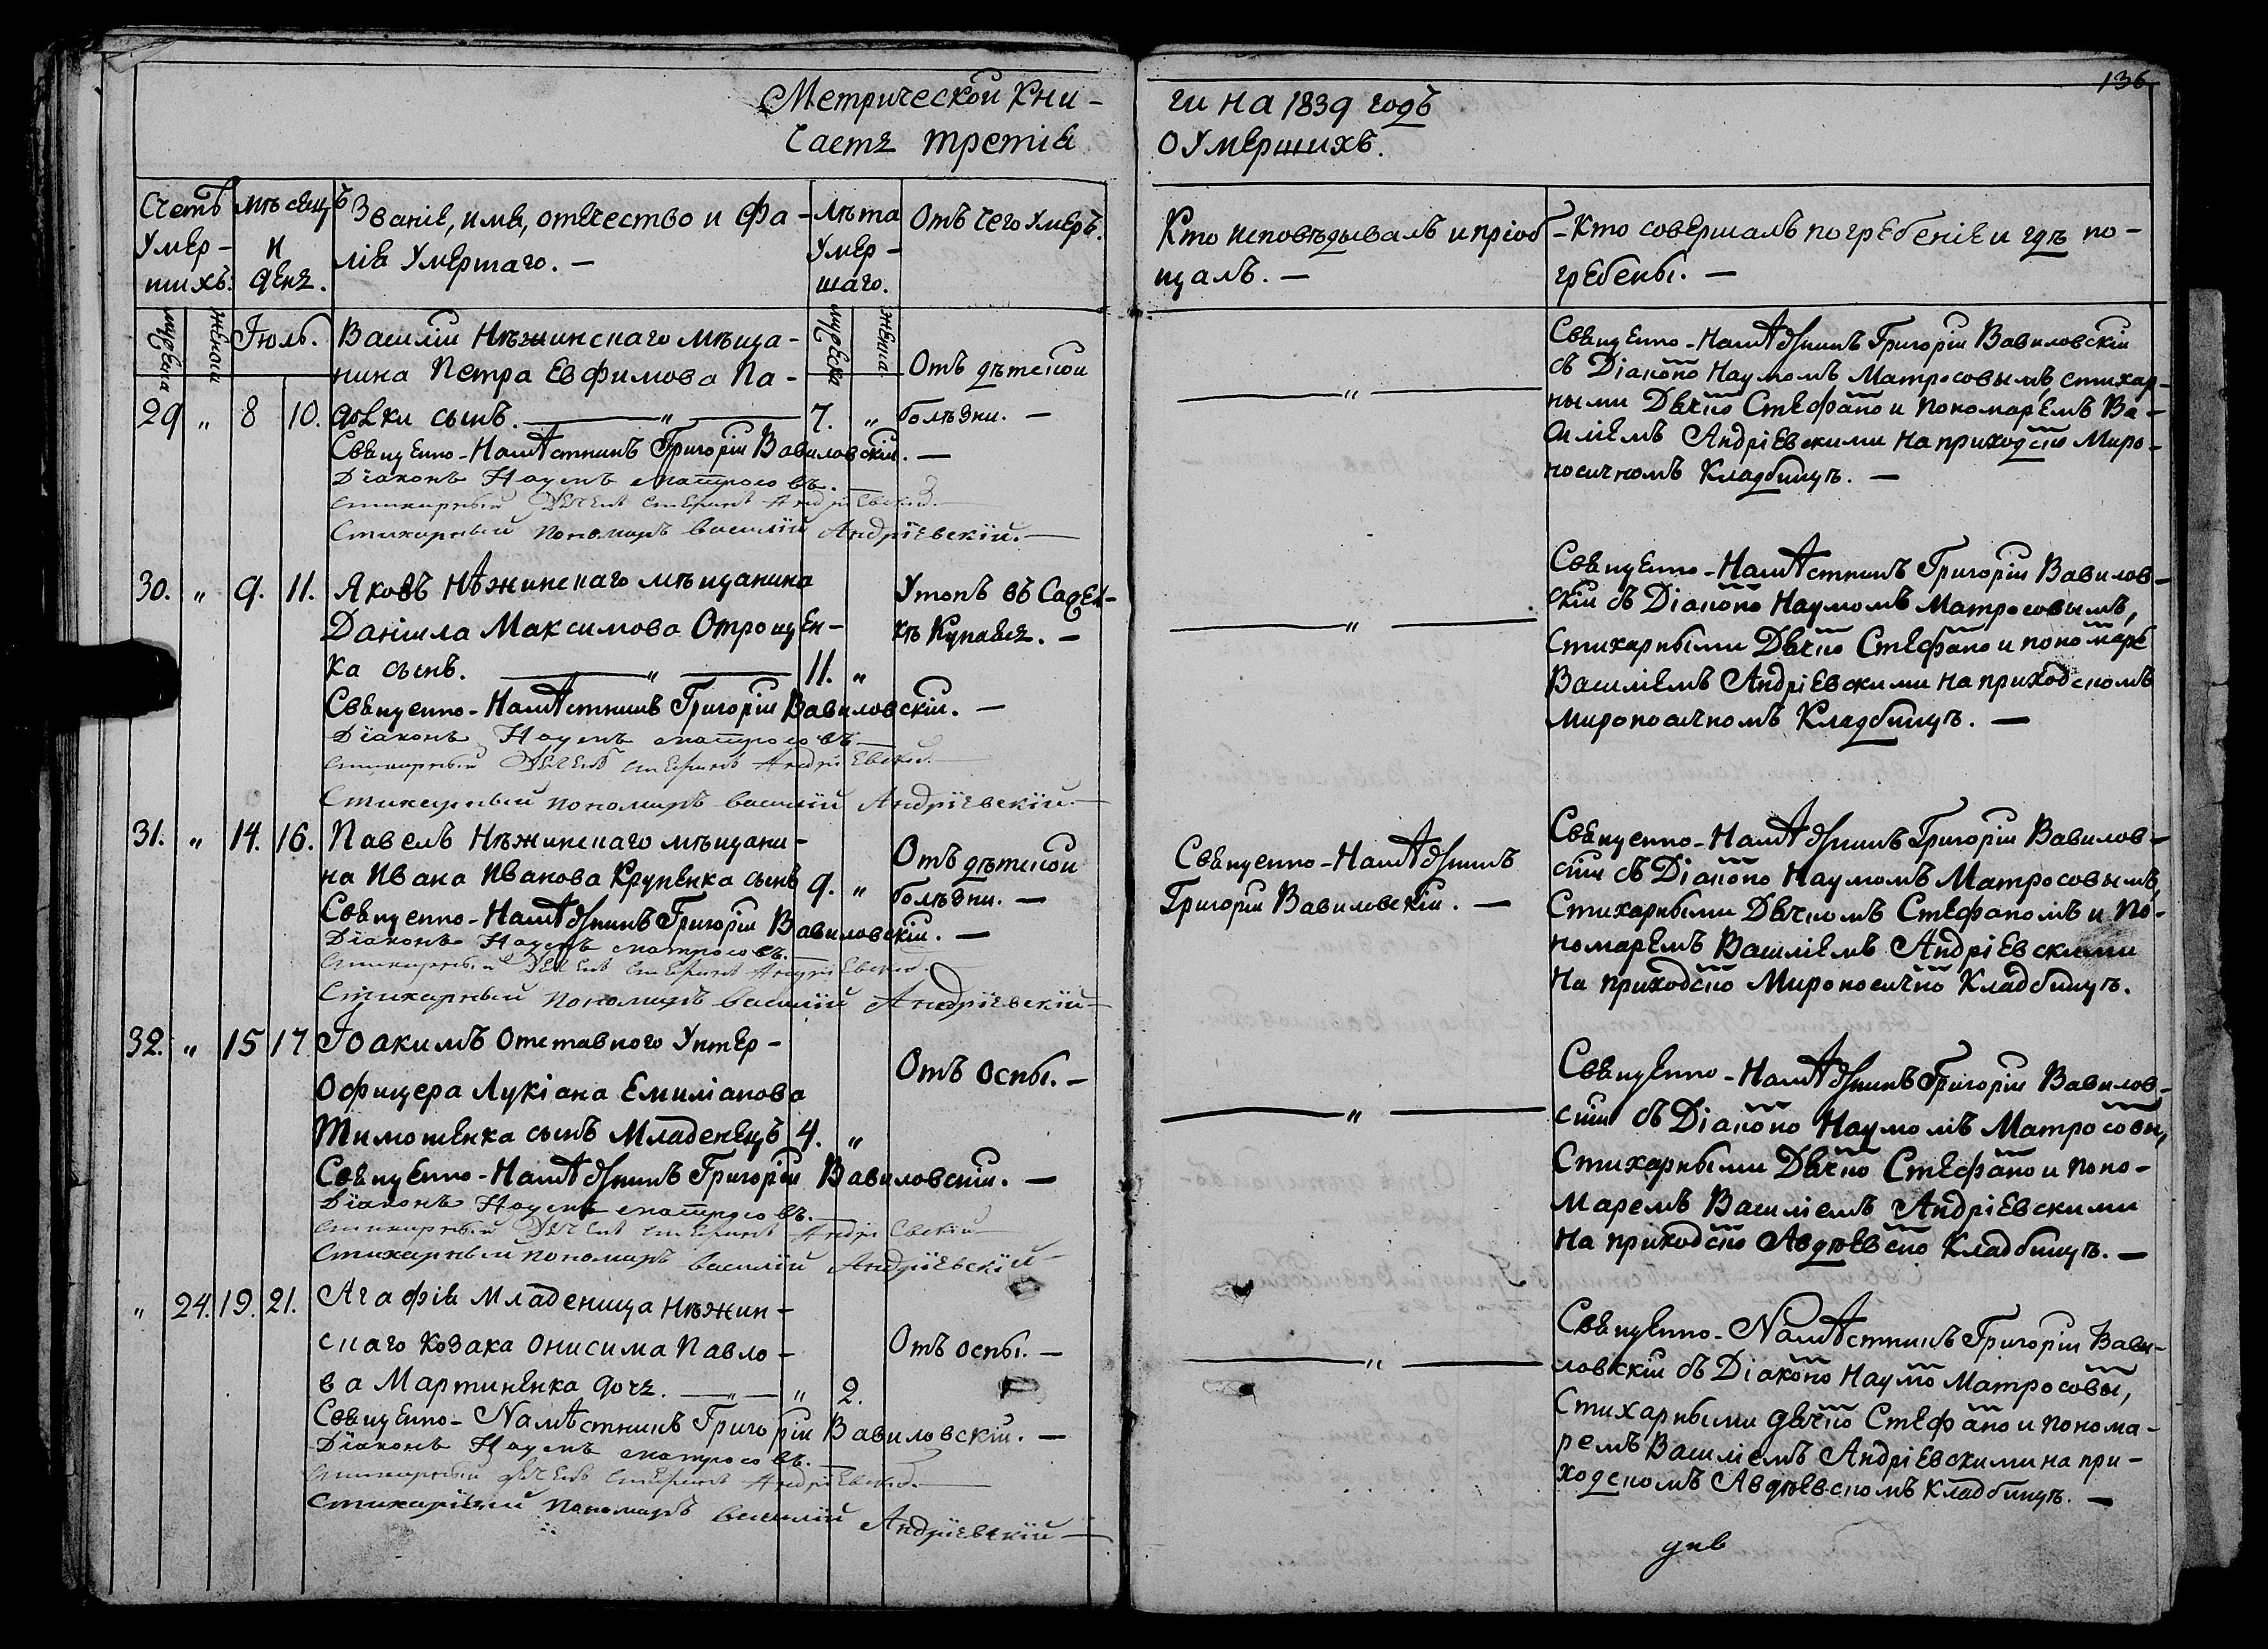 136
Метрической Кни-
Часть третія
ги на 1839 годъ
О Умершихъ.
Счетъ Умер-шихъ:
мѣсяцъ и день.
Званіе, имя, отечество и фа-
милія Умершаго. —
Лѣта Умер-шаго.
Отъ чего Умеръ.
Кто исповѣдывалъ и пріоб-
щалъ. —
Кто совершалъ погребеніе и гдѣ по-
гребены. —
мужеска
женска
Іюль.
мужеска
женска
Василій Нѣжинскаго мѣща-
нина Петра Евфимова Па-
29 „ 8 10. довки сынъ. — „ — 7. „
Отъ дѣтской
болѣзни. —
Священно-Намѣстникъ Григорій Вавиловскій. —
Діаконъ Наумъ Матросовъ. —
Стихарный Дячекъ Стефанъ Андріевскій. —
Стихарный пономарь Василій Андріевскій. —
— „ —
Священно-Намѣстникъ Григорій Вавиловскій
съ Діаконо Наумомъ Матросовымъ, стихар-
ными Дячко Стефано и пономаремъ Ва-
силіемъ Андріевскими на приходско Миро-
носичномъ Кладбищѣ. —
30. „ 9. 11. Яковъ Нѣжинскаго мѣщанина
Даніила Максимова Отрощен-
ка сынъ. — „ — 11. „
Утопъ въ Садел-
кѣ Купаясь. —
Священно-Намѣстникъ Григорій Вавиловскій. —
Діаконъ Наумъ Матросовъ —
Стихарный Дячекъ Стефанъ Андріевскій. —
Стихарный пономарь Василій Андріевскій. —
— „ —
Священно-Намѣстникъ Григорій Вавилов-
скій съ Діаконо Наумомъ Матросовымъ,
Стихарными Дячко Стефано и пономаре
Василіемъ Андріевскими на приходскомъ
мироносичномъ Кладбищѣ. —
31. „ 14. 16. Павелъ Нѣжинскаго мѣщани-
на Ивана Иванова Крупенка сынъ 9. „
Отъ дѣтской
болѣзни. —
Священно-Намѣстникъ Григорій Вавиловскій. —
Діаконъ Наумъ Матросовъ. —
Стихарный Дячекъ Стефанъ Андріевскій. —
Стихарный пономарь Василій Андріевскій —
Священно-Намѣстникъ
Григорій Вавиловскій. —
Священно-Намѣстникъ Григорій Вавилов-
скій съ Діаконо Наумомъ Матросовымъ,
Стихарными Дячкомъ Стефаномъ и По-
номаремъ Василіемъ Андріевскими
На приходско Мироносично Кладбищѣ.
32. „ 15 17 Іоакимъ Отставного Унтер-
Офицера Лукіана Емиліанова
Тимошенка сынъ Младенецъ 4. „
Отъ Оспы. —
Священно-Намѣстникъ Григорій Вавиловскій. —
Діаконъ Наумъ Матросовъ. —
Стихарный Дячекъ Стефанъ Андріевскій —
Стихарный пономарь Василій Андріевскій —
— „ —
Священно-Намѣстникъ Григорій Вавилов-
скій съ Діаконо Наумомъ Матросовы,
Стихарными Дячко Стефано и поно-
маремъ Василіемъ Андріевскими
на приходско Авдѣевско Кладбищѣ. —
„ 24. 19. 21. Агафія Младеница Нѣжин-
скаго Козака Онисима Павло-
ва Мартиненка дочь. — „ — „ 2.
Отъ оспы. —
Священно-Намѣстникъ Григорій Вавиловскій. —
Діаконъ Наумъ Матросовъ. —
Стихарный Дячекъ Стефанъ Андріевскій. —
Стихарный пономарь Василій Андріевскій —
— „ —
Священно-Намѣстникъ Григорій Вави-
ловскій съ Діаконо Наумо Матросовы,
Стихарными дячко Стефано и понома-
ремъ Василіемъ Андріевскими на при-
ходскомъ Авдѣевскомъ Кладбищѣ. —